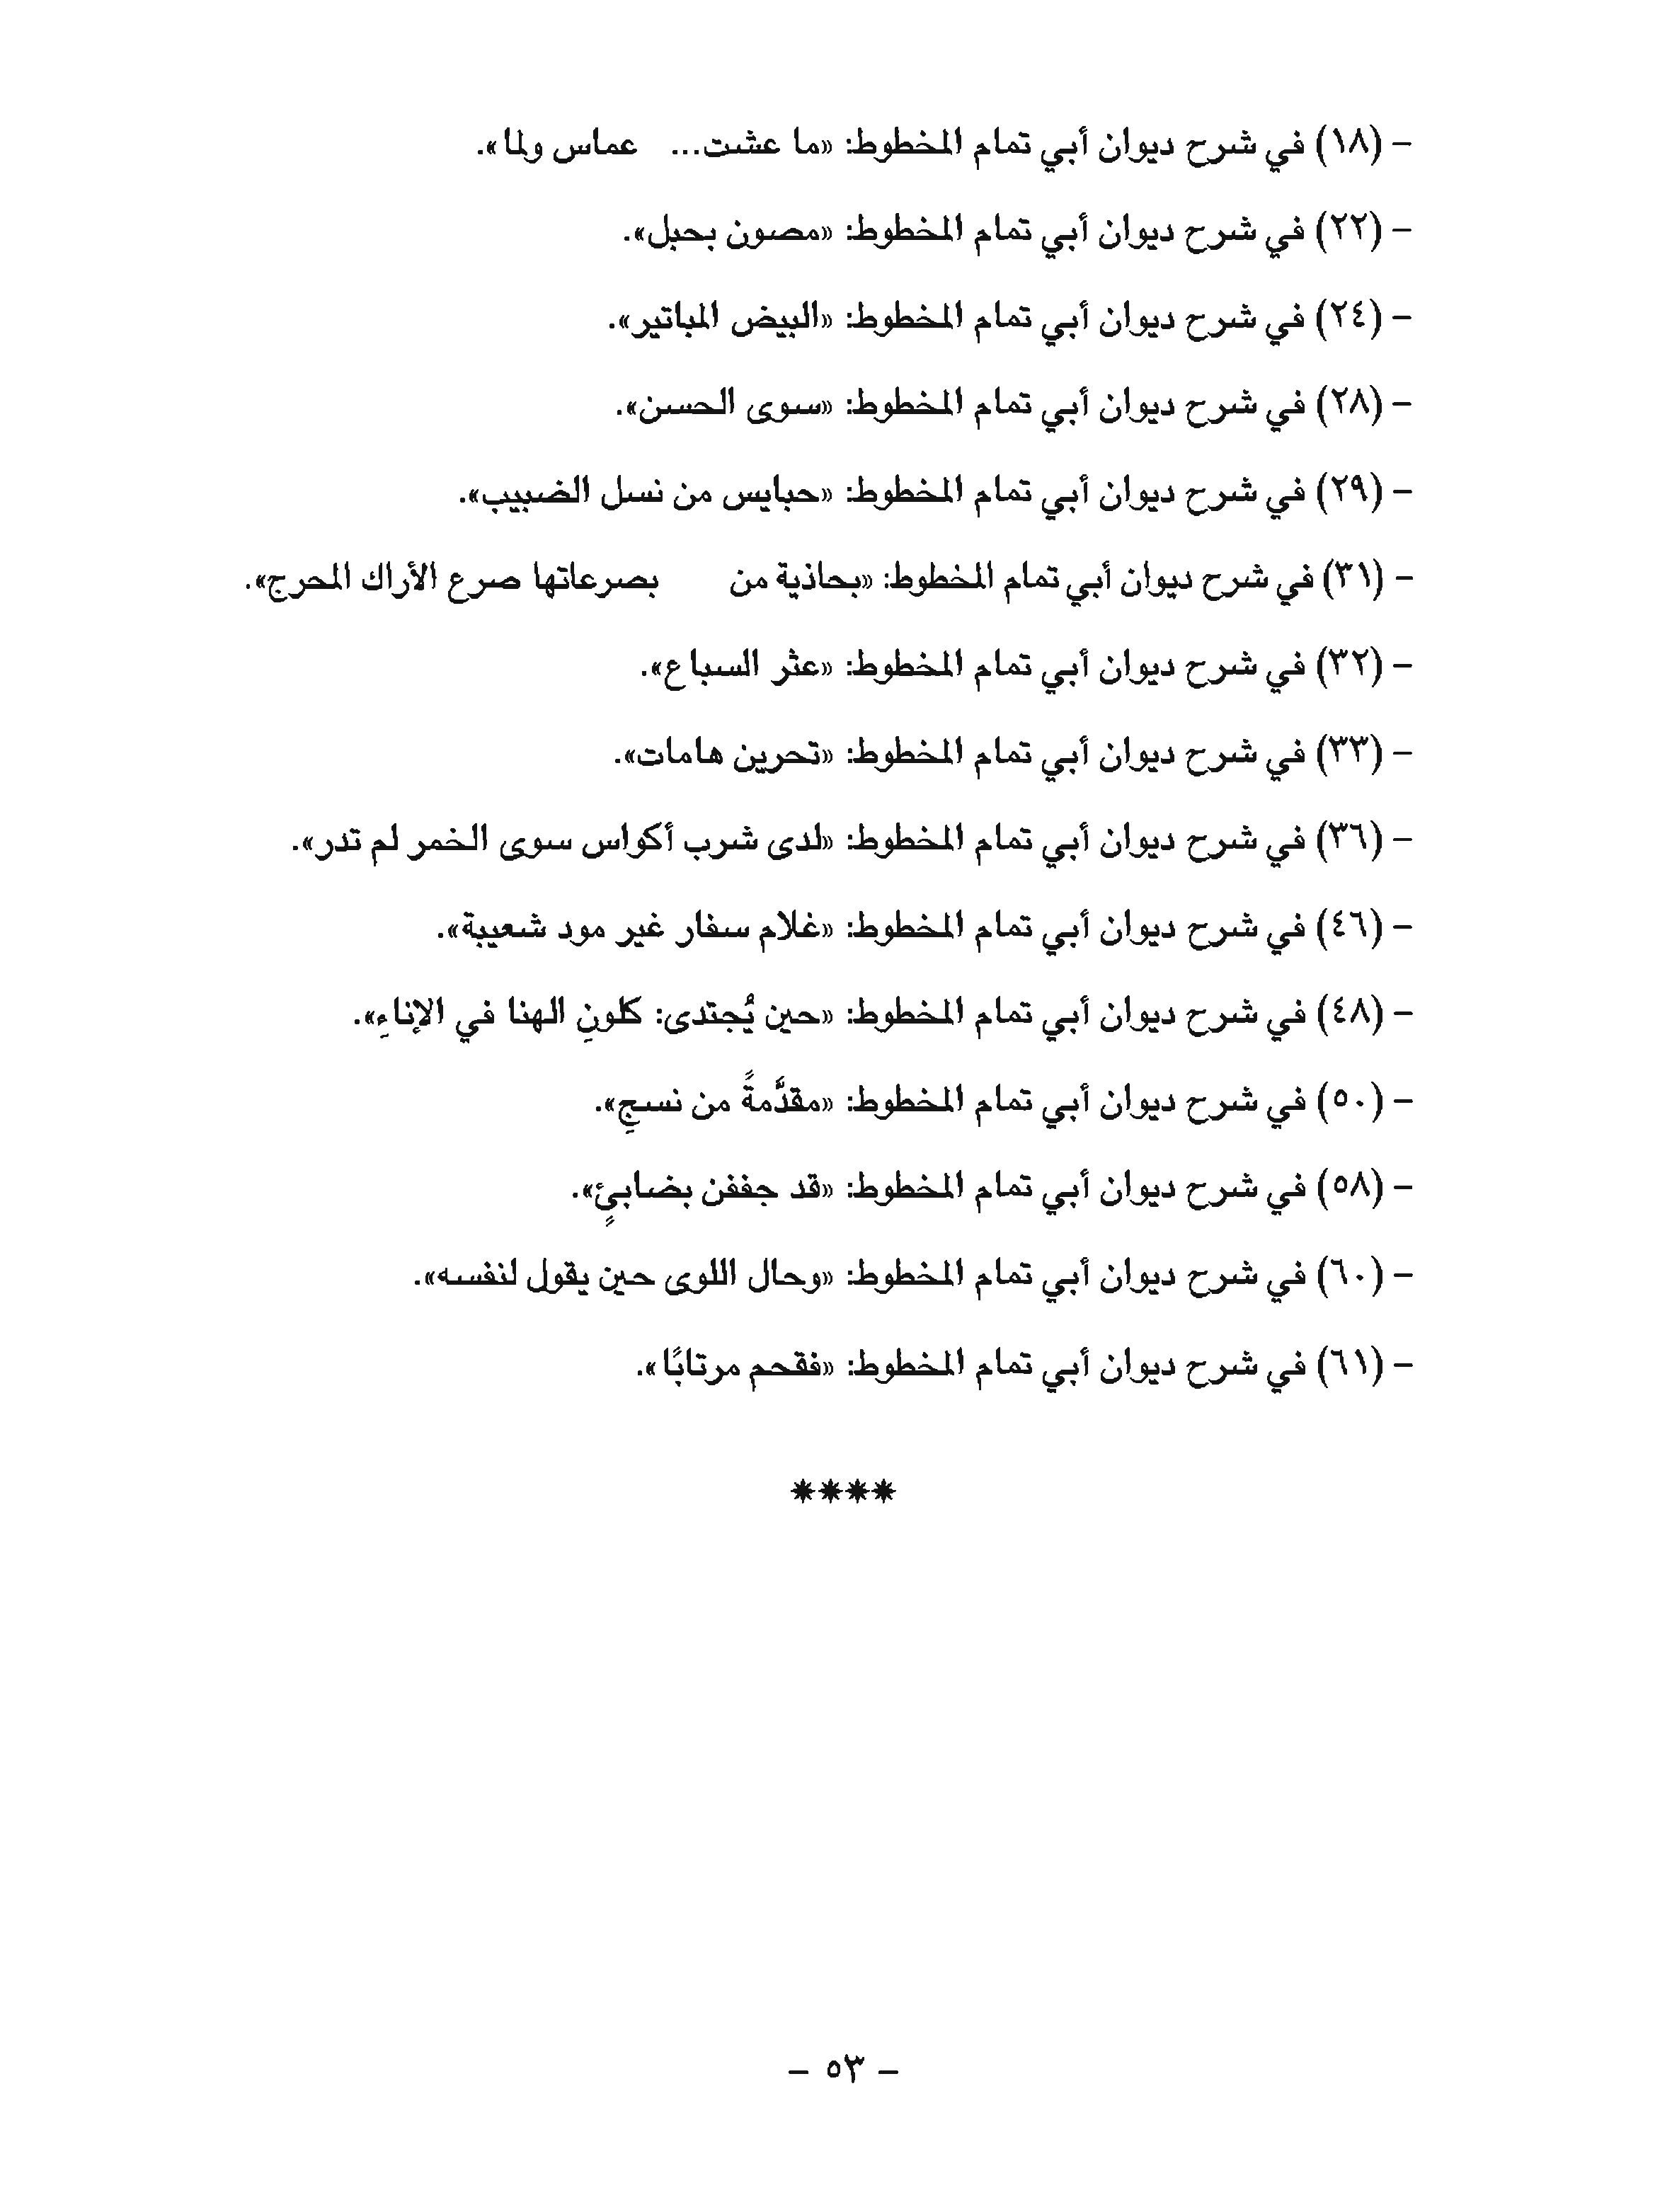 – (١٨) في شرح ديوان أبي تمام المخطوط: «ما عشت... عماس ولما».
– (٢٢) في شرح ديوان أبي تمام المخطوط: «مصون بحبل».
– (٢٤) في شرح ديوان أبي تمام المخطوط: «البيض المباتير».
– (٢٨) في شرح ديوان أبي تمام المخطوط: «سوى الحسن».
– (٢٩) في شرح ديوان أبي تمام المخطوط: «حبايس من نسل الضبيب».
– (٣١) في شرح ديوان أبي تمام المخطوط: «بحاذية من بصرعاتها صرع الأراك المحرج».
– (٣٢) في شرح ديوان أبي تمام المخطوط: «عثر السباع».
– (٣٣) في شرح ديوان أبي تمام المخطوط: «تحرين هامات».
– (٣٦) في شرح ديوان أبي تمام المخطوط: «لدى شرب أكواس سوى الخمر لم تدر».
– (٤٦) في شرح ديوان أبي تمام المخطوط: «غلام سفار غير مود شعيبة».
– (٤٨) في شرح ديوان أبي تمام المخطوط: «حين يُجتدى: كلونِ الهنا في الإناءِ».
– (٥٠) في شرح ديوان أبي تمام المخطوط: «مقدَّمةً من نسجِ».
– (٥٨) في شرح ديوان أبي تمام المخطوط: «قد جففن بضابئٍ».
– (٦٠) في شرح ديوان أبي تمام المخطوط: «وحال اللوى حين يقول لنفسه».
– (٦١) في شرح ديوان أبي تمام المخطوط: «فقحم مرتابًا».
****
– ٥٣ –